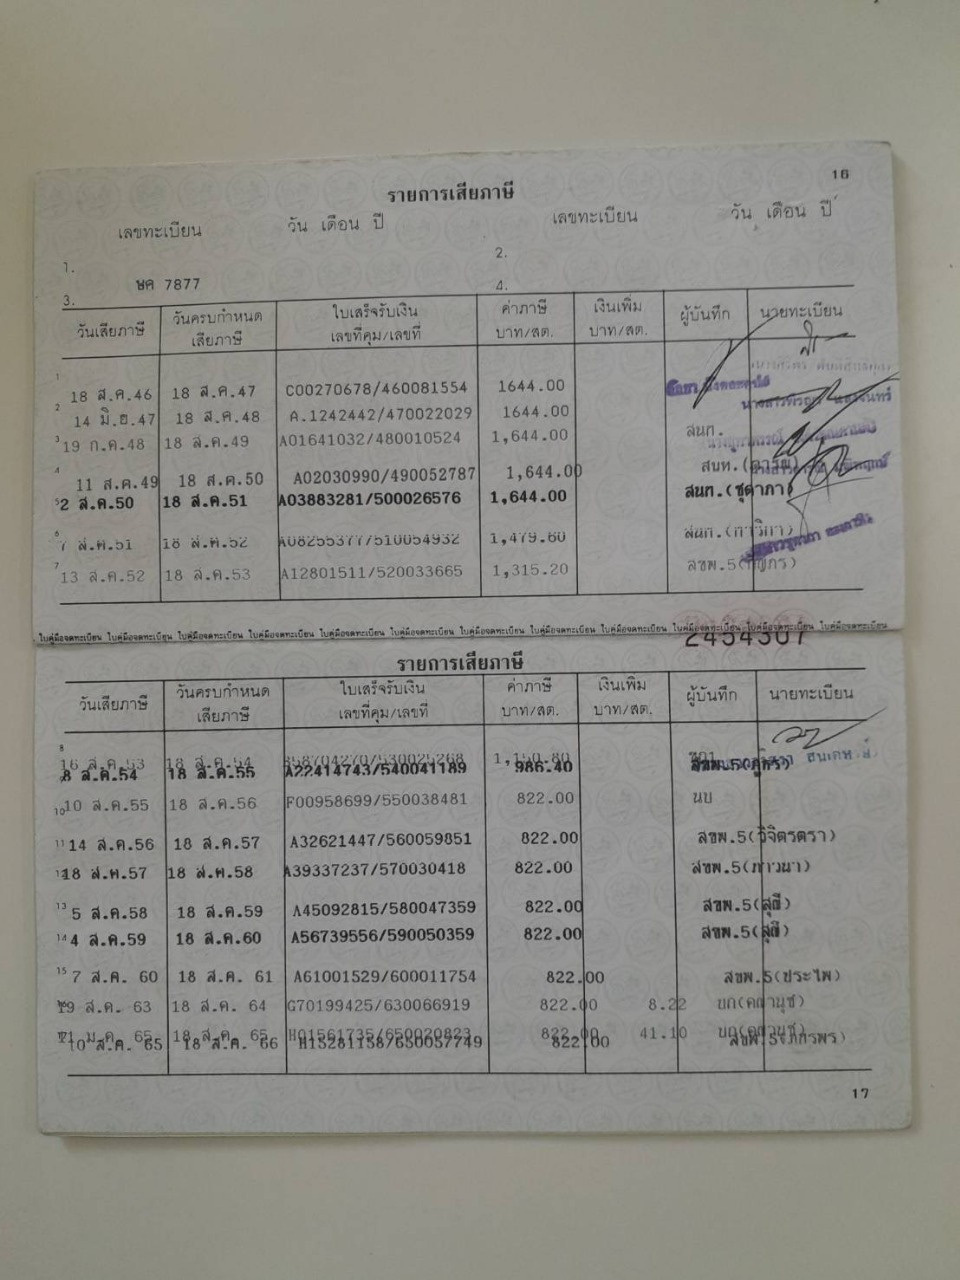 16
รายการเสียภาษี
เลขทะเบียน วัน เดือน ปี เลขทะเบียน วัน เดือน ปี
1. 2.
ษค 7877
3. 4.
วันเสียภาษี วันครบกำหนดเสียภาษี ใบเสร็จรับเงิน เลขที่คุม/เลขที่ ค่าภาษี บาท/สต. เงินเพิ่ม บาท/สต. ผู้บันทึก นายทะเบียน
1 18 ส.ค.46 18 ส.ค.47 C00270678/460081554 1644.00
2 14 มิ.ย.47 18 ส.ค.48 A.1242442/470022029 1644.00
3 19 ก.ค.48 18 ส.ค.49 A01641032/480010524 1,644.00 สนก.
4 11 ส.ค.49 18 ส.ค.50 A02030990/490052787 1,644.00 สบท.
5 2 ส.ค.50 18 ส.ค.51 A03883281/500026576 1,644.00 สนก.(ชุดาภา)
6 7 ส.ค.51 18 ส.ค.52 A08255377/510054932 1,479.60 สนก.
7 13 ส.ค.52 18 ส.ค.53 A12801511/520033665 1,315.20 สขพ.5
ใบคู่มือจดทะเบียน ใบคู่มือจดทะเบียน ใบคู่มือจดทะเบียน ใบคู่มือจดทะเบียน ใบคู่มือจดทะเบียน ใบคู่มือจดทะเบียน ใบคู่มือจดทะเบียน ใบคู่มือจดทะเบียน ใบคู่มือจดทะเบียน ใบคู่มือจดทะเบียน ใบคู่มือจดทะเบียน ใบคู่มือจดทะเบียน
2454307
รายการเสียภาษี
วันเสียภาษี วันครบกำหนดเสียภาษี ใบเสร็จรับเงิน เลขที่คุม/เลขที่ ค่าภาษี บาท/สต. เงินเพิ่ม บาท/สต. ผู้บันทึก นายทะเบียน
8 16 ส.ค.53 18 ส.ค.54 1,150.80
8 ส.ค.54 18 ส.ค.55 A22414743/540041189 986.40
10 10 ส.ค.55 18 ส.ค.56 F00958699/550038481 822.00 นบ
11 14 ส.ค.56 18 ส.ค.57 A32621447/560059851 822.00 สขพ.5(วิจิตรตรา)
18 ส.ค.57 18 ส.ค.58 A39337237/570030418 822.00 สขพ.5(ภาวนา)
13 5 ส.ค.58 18 ส.ค.59 A45092815/580047359 822.00 สขพ.5(สุณี)
14 4 ส.ค.59 18 ส.ค.60 A56739556/590050359 822.00 สขพ.5(สุณี)
15 7 ส.ค. 60 18 ส.ค. 61 A61001529/600011754 822.00 สขพ.5(ประไพ)
19 ส.ค. 63 18 ส.ค. 64 G70199425/630066919 822.00 8.22 บก(คณานุช)
18 ส.ค. 65 H01561735/650020823 822.00 41.10 บก(คณานุช)
10 ส.ค. 65 18 ส.ค. 66 H15281158/650057749 822.00
17